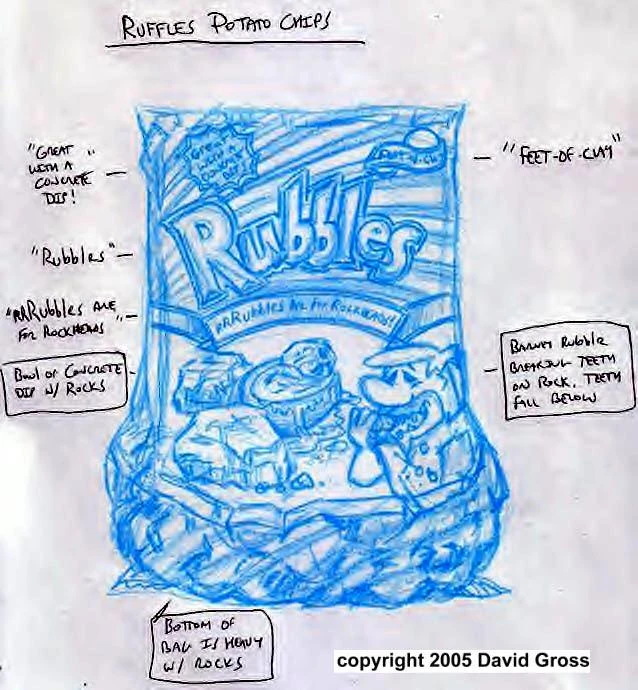 RUFFLES POTATO CHIPS
"GREAT
WITH A
CONCRETE
DIP!"
"FEET-OF-CLAY"
GREAT
WITH A
DIP!
"Rubbles"
Rubbles
"RRRubbles ARE
FOR ROCKHEADS"
RRRubbles Are For Rockheads!
BOWL OF CONCRETE
DIP W/ ROCKS
BARNEY RUBBLE
BREAKING TEETH
ON ROCK. TEETH
FALL BELOW
BOTTOM OF
BAG IS HEAVY
W/ ROCKS
copyright 2005 David Gross